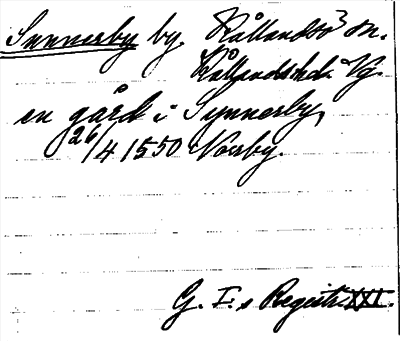 Sunnerby by, Kållandsö sn.
Kållandshd. Vg.
en gård i Synnerby,
26/4 1550 Norrby.
G. I:s Registr. XXI.